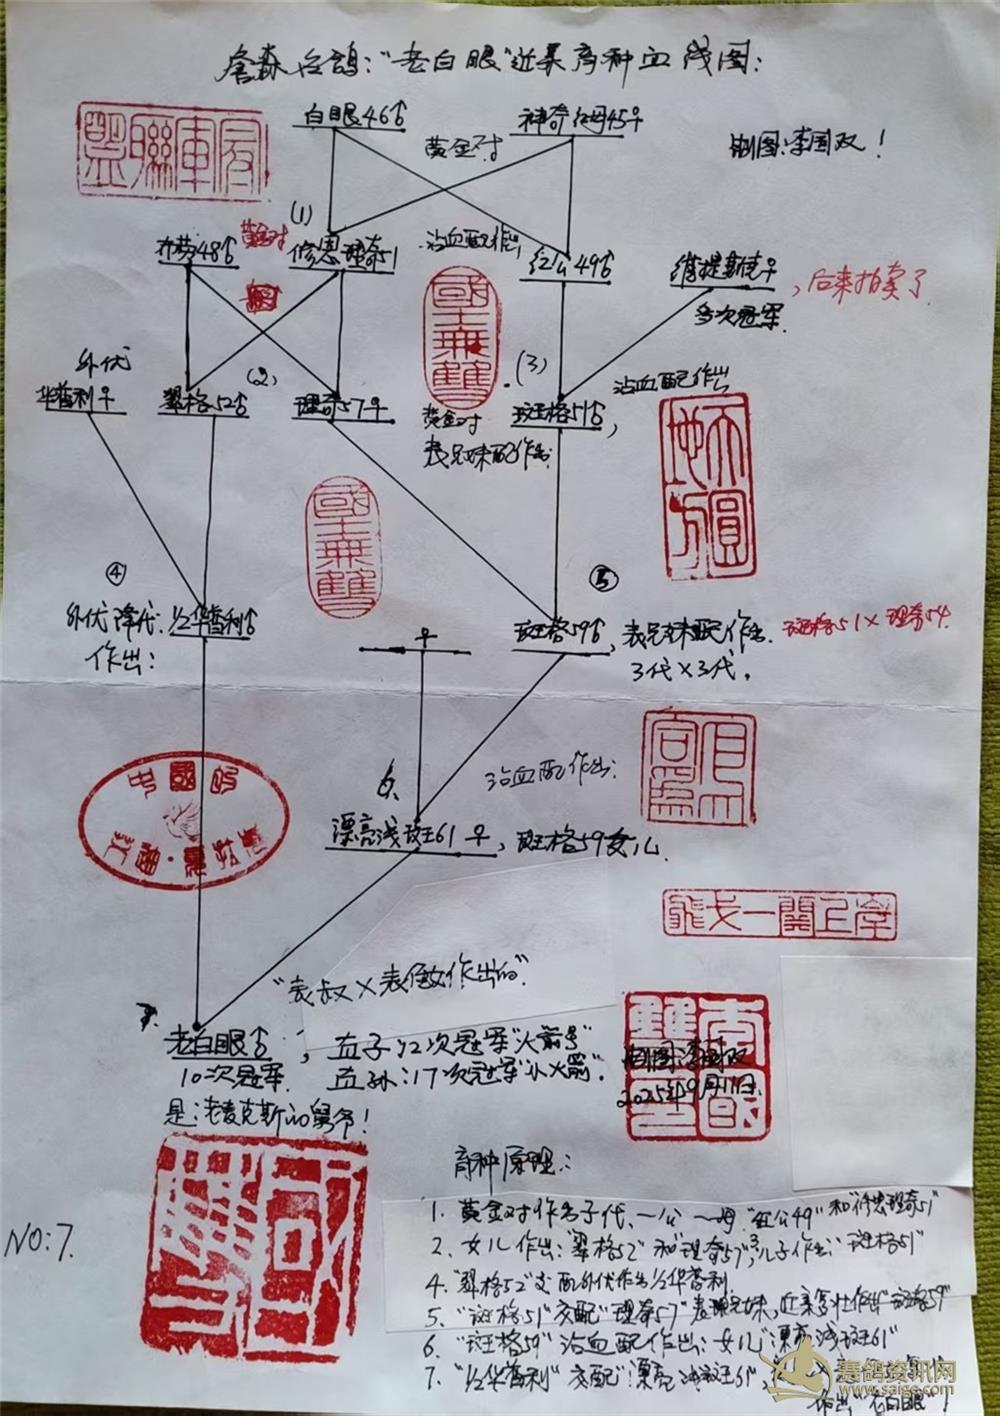 詹森白鸽:"老白眼"近亲育种血线图:
白眼46♂
神奇红母45♀
黄金对
制图:李国双!
(1)
布劳48♂
黄金对
修恩理奇51
沾血配作出
红公49♂
维提斯克♀
多次冠军
,后来拍卖了
國士無雙
(2)
(3)
外伏
华普利♀
翠格52♂
理奇57♀
黄金对
表兄妹配作出
斑格51♂,
沾血配作出
國士無雙
④
⑤
外伏降代:
作出:
公华普利♂
♀
斑格59♂,表兄妹配作出
3代×3代。
6、
沾血配作出:
漂亮浅斑61♀,斑格59女儿.
"表叔×表侄女作出的"
老白眼♂,直子:12次冠军"火箭号"
10次冠军. 直孙:17次冠军"小火箭".
是:老麦克斯的舅爷!
制图:李国双
2025年9月11日.
NO:7.
育种原理:
1. 黄金对作名子代、一公一母"红公49"和"修恩理奇51"
2、女儿作出:"翠格52"和"理奇57",3儿子作出:"斑格51"
4、"翠格52"交配外伏作出公华普利
5、"斑格51"交配"理奇57"表兄妹,近亲作出"斑格59"
6、"斑格59"沾血配作出:女儿"漂亮浅斑61"
7、"公华普利"交配"漂亮浅斑61",
作出"老白眼"!
赛鸽资讯网
www.saige.com